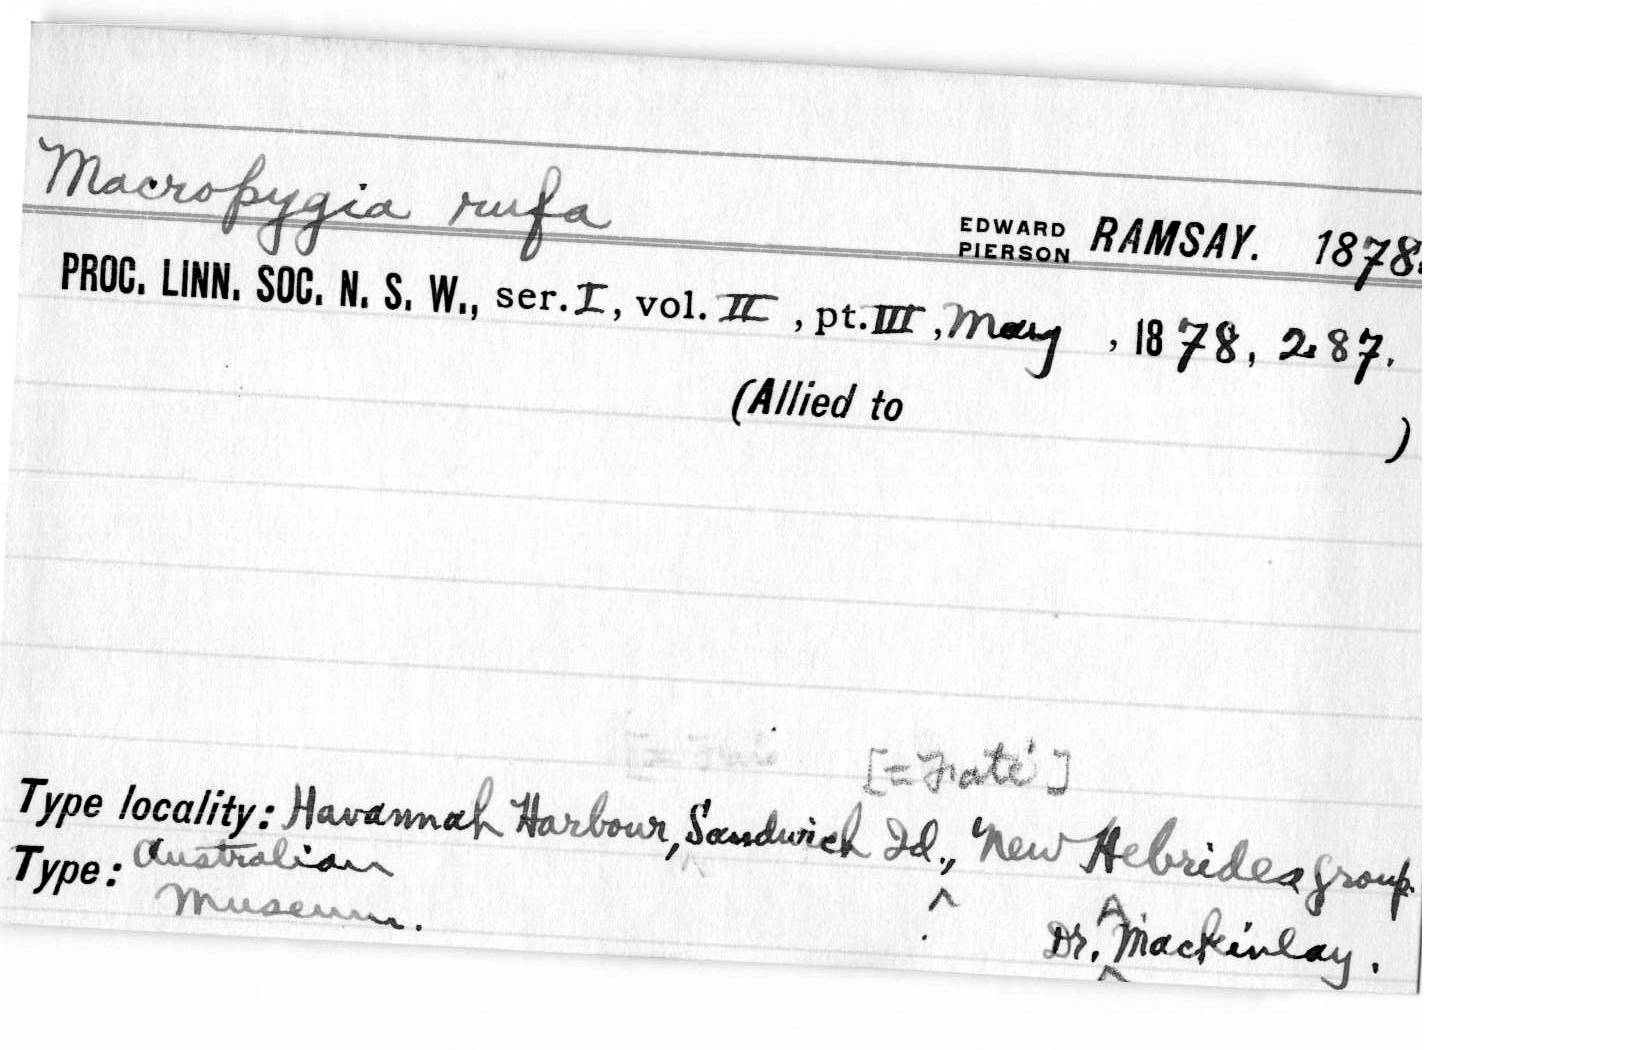 Macropygia rufa EDWARD PIERSON RAMSAY. 1878.
PROC. LINN. SOC. N. S. W., ser. I, vol. II, pt. III, May, 1878, 287.
(Allied to )
[= Fate']
Type locality: Havannah Harbour, Sandwich Id., New Hebrides group.
Type: Australian
Museum. Dr. Mackinlay.